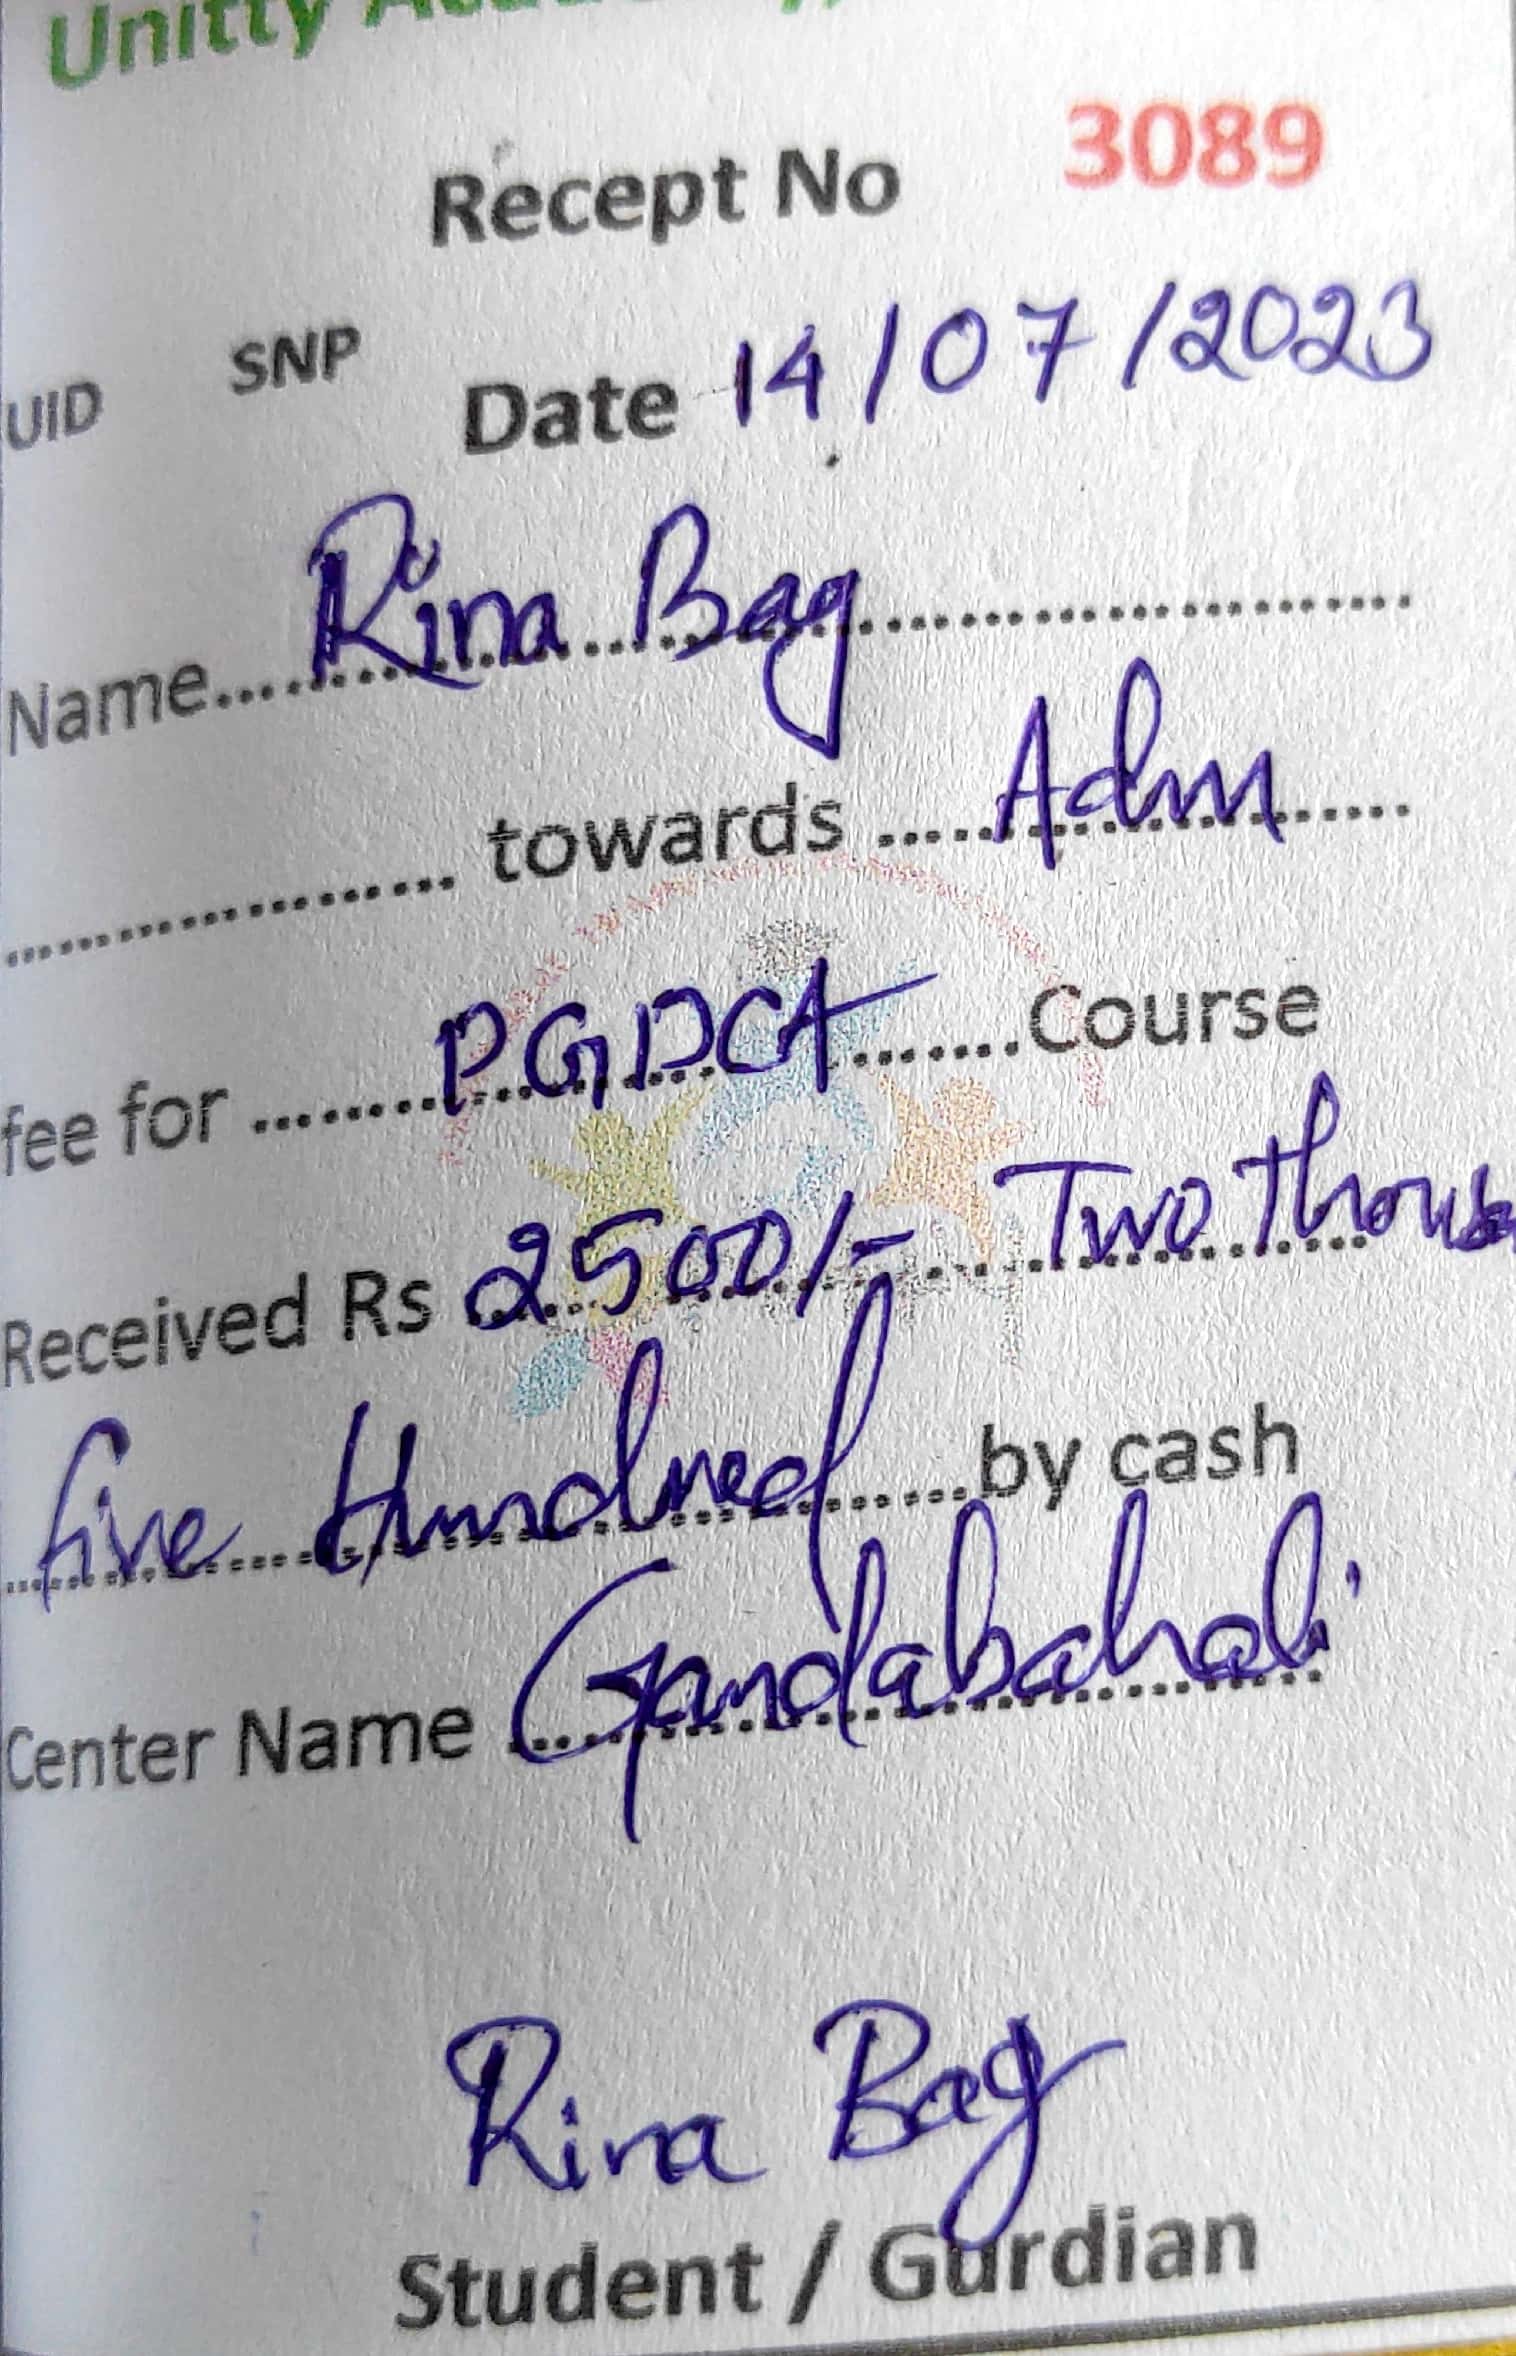 Unitty
Recept No 3089
UID SNP Date 14/07/2023
Name Rina Bag
towards Adm
fee for PGDCA Course
Received Rs 2500/- Two Thous
five Hundred by cash
Center Name Gandabahali
Rina Bag
Student / Gurdian